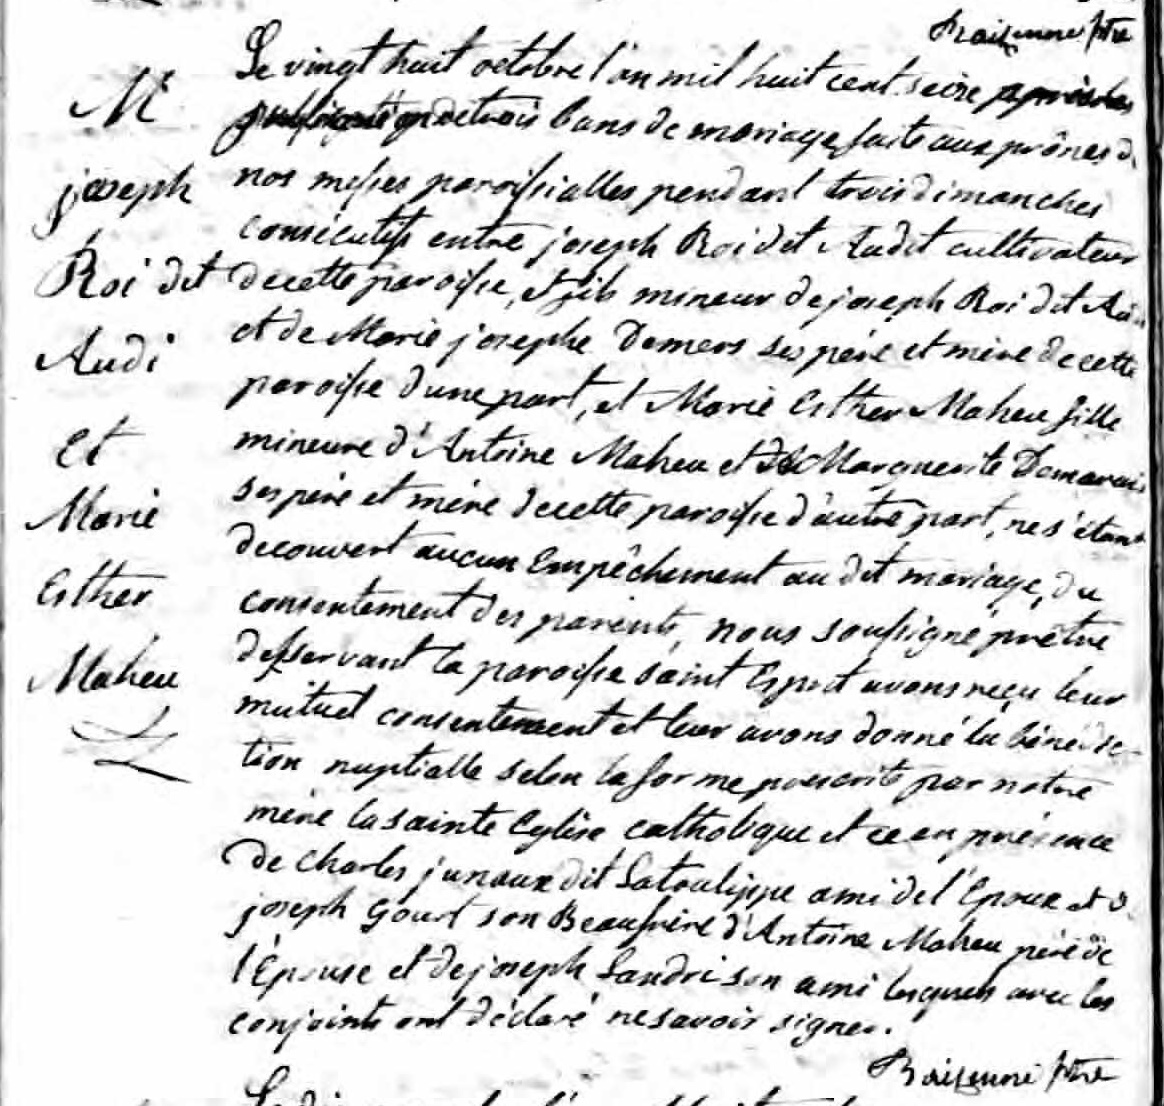 Raizenne ptre
M
joseph
Roi dit
Audi
Et
Marie
Esther
Maheu
Le vingt huit octobre l'an mil huit cent seize après les
publication de trois bans de mariage faits aux prônes d
nos messes paroissialles pendant trois dimanches
consécutifs entre joseph Roi dit Audit cultivateur
de cette paroisse, et fils mineur de joseph Roi dit Au
et de Marie josephe Demers ses père et mère de cette
paroisse d'une part, et Marie Esther Maheu fille
mineure d'Antoine Maheu et de Marguerite Demarais
ses père et mère de cette paroisse d'autre part, ne s'étant
decouvert aucun Empêchement au dit mariage, du
consentement des parents, nous soussigné prêtre
desservant la paroisse saint Esprit avons reçu leur
mutuel consentement et leur avons donné la bénédic-
tion nuptialle selon la forme prescrite par notre
mère la sainte Eglise catholique et ce en présence
de Charles junaux dit Latoulippe ami de l'Epoux et d
joseph Gourt son Beaufrère d'Antoine Maheu père de
l'Épouse et de joseph Landri son ami lesquels avec les
conjoints ont déclaré ne savoir signer.
Raizenne ptre